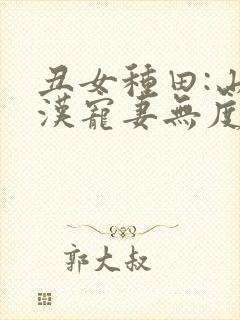 丑女種田:山
漢寵妻無度
郭大叔